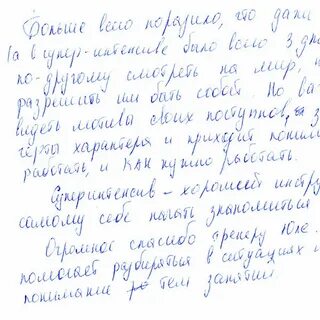 Больше всего поразило, что даже
(а в супер-интенсиве было всего 3 дн
по-другому смотреть на мир,
разрешить им быть собой. Но ва
видеть мотивы своих поступков, за
черты характера и приходит поним
работать, и КАК нужно работать.
Суперинтенсив – хороший инстру
самому себе начать знакомиться
Огромное спасибо тренеру Юле.
помогает разбираться в ситуациях и
понимание тем занятий